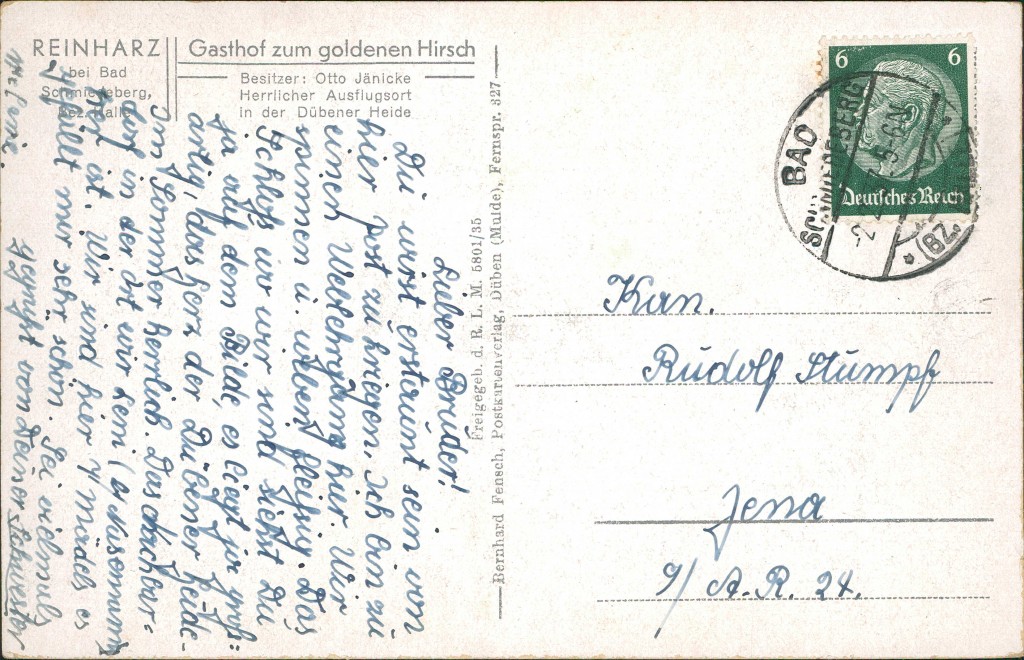 REINHARZ
bei Bad
Schmiedeberg,
Bez. Halle
Gasthof zum goldenen Hirsch
Besitzer: Otto Jänicke
Herrlicher Ausflugsort
in der Dübener Heide
Lieber Bruder!
Du wirst erstaunt sein von
hier Post zu kriegen. Ich bin zu
einem Wehrgäng hier. Wir
spinnen u. weben fleißig. Das
Schloß wo wir sind siehst Du
ja auf dem Bilde, es liegt ja groß-
artig, das Herz der Dübener Heide
Im Sommer herrlich. Das Nachbar-
dorf in der Ort wir sein
dorf ist. Wir sind hier Mädels es
gefällt mir sehr schön. Sei vielmals
gegrüßt von Deiner Schwester
Freigegeb. d. R. L. M. 5801/35
Bernhard Fensch, Postkartenverlag, Düben (Mulde), Fernspr. 327
6 6
Deutsches Reich
BAD
SCHMIEDEBERG
(BZ.
Kan.
Rudolf Stumpf
Jena
9/ A. R. 24.